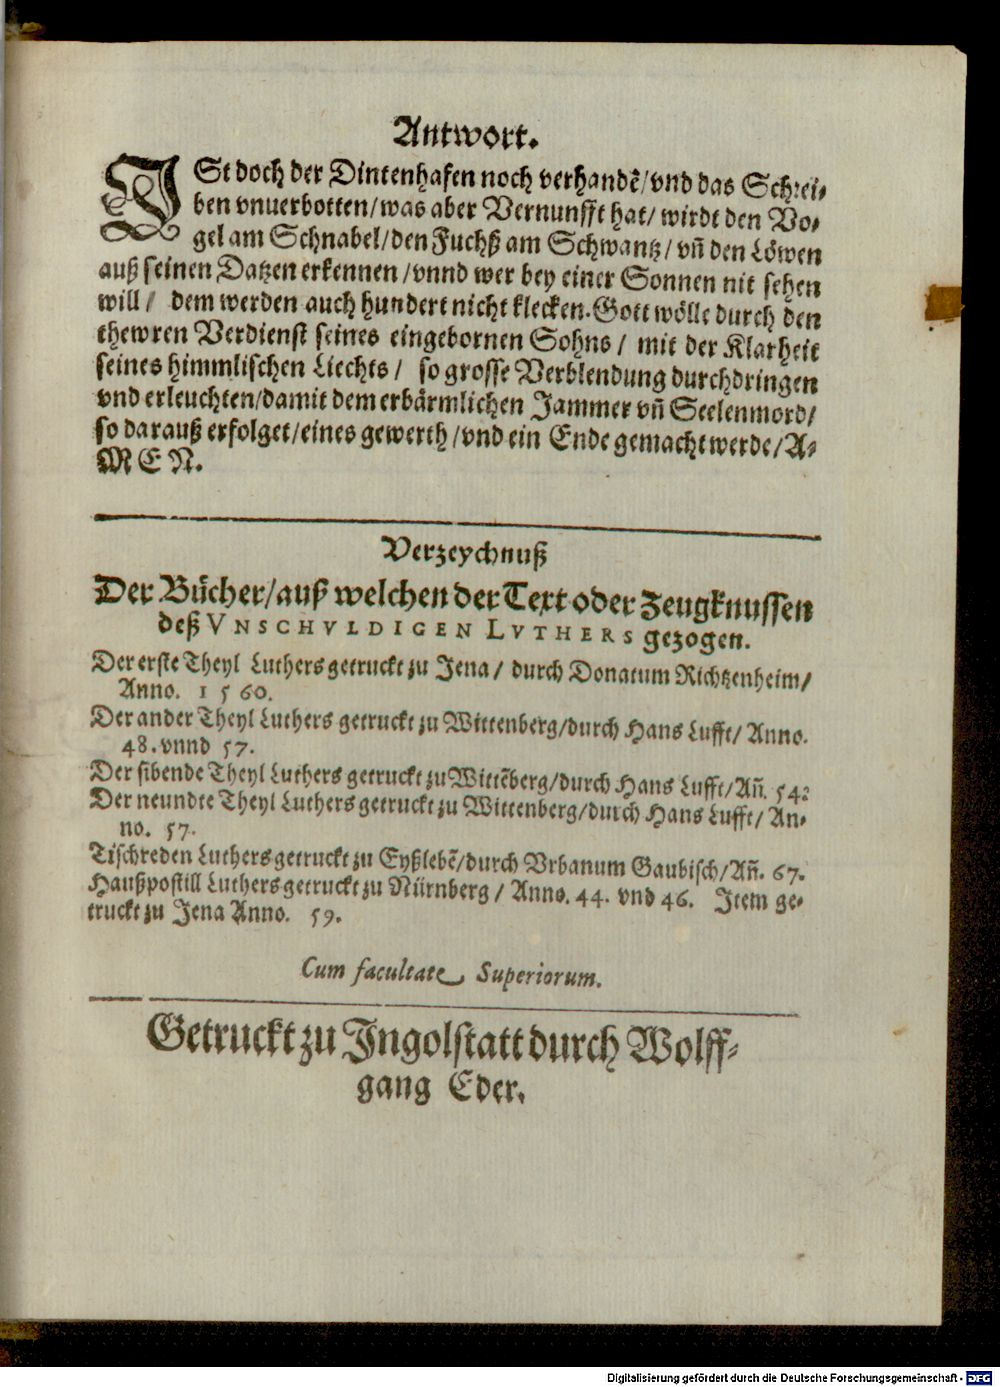 Antwort.
ISt doch der Dintenhafen noch verhandē/vnd das Schrei⸗
ben vnuerbotten/was aber Vernunfft hat/ wirdt den Vo⸗
gel am Schnabel/den Fuchß am Schwantz/ vn̄ den Löwen
auß seinen Datzen erkennen/vnnd wer bey einer Sonnen nit sehen
will/ dem werden auch hundert nicht klecken. Gott wölle durch den
thewren Verdienst seines eingebornen Sohns/ mit der Klarheit
seines himmlischen Liechts/ so grosse Verblendung durchdringen
vnd erleuchten/damit dem erbärmlichen Jammer vn̄ Seelenmord/
so darauß erfolget/eines gewerth/vnd ein Ende gemacht werde/A⸗
MEN.
Verzeychnuß
Der Bücher/auß welchen der Text oder Zeugknussen
deß VNSCHVLDIGEN LVTHERS gezogen.
Der erste Theyl Luthers getruckt zu Jena/ durch Donatum Richtzenheim/
Anno. 1560.
Der ander Theyl Luthers getruckt zu Wittenberg/durch Hans Lufft/ Anno.
48. vnnd 57.
Der sibende Theyl Luthers getruckt zu Wittēberg/durch Hans Lufft/An̄. 54:
Der neundte Theyl Luthers getruckt zu Wittenberg/durch Hans Lufft/ An⸗
no. 57.
Tischreden Luthers getruckt zu Eyßlebē/durch Vrbanum Gaubisch/An̄. 67.
Haußpostill Luthers getruckt zu Nürnberg/ Anno. 44. vnd 46. Item ge⸗
truckt zu Jena Anno. 59.
Cum facultate Superiorum.
Getruckt zu Ingolstatt durch Wolff⸗
gang Eder.
Digitalisierung gefördert durch die Deutsche Forschungsgemeinschaft - DFG